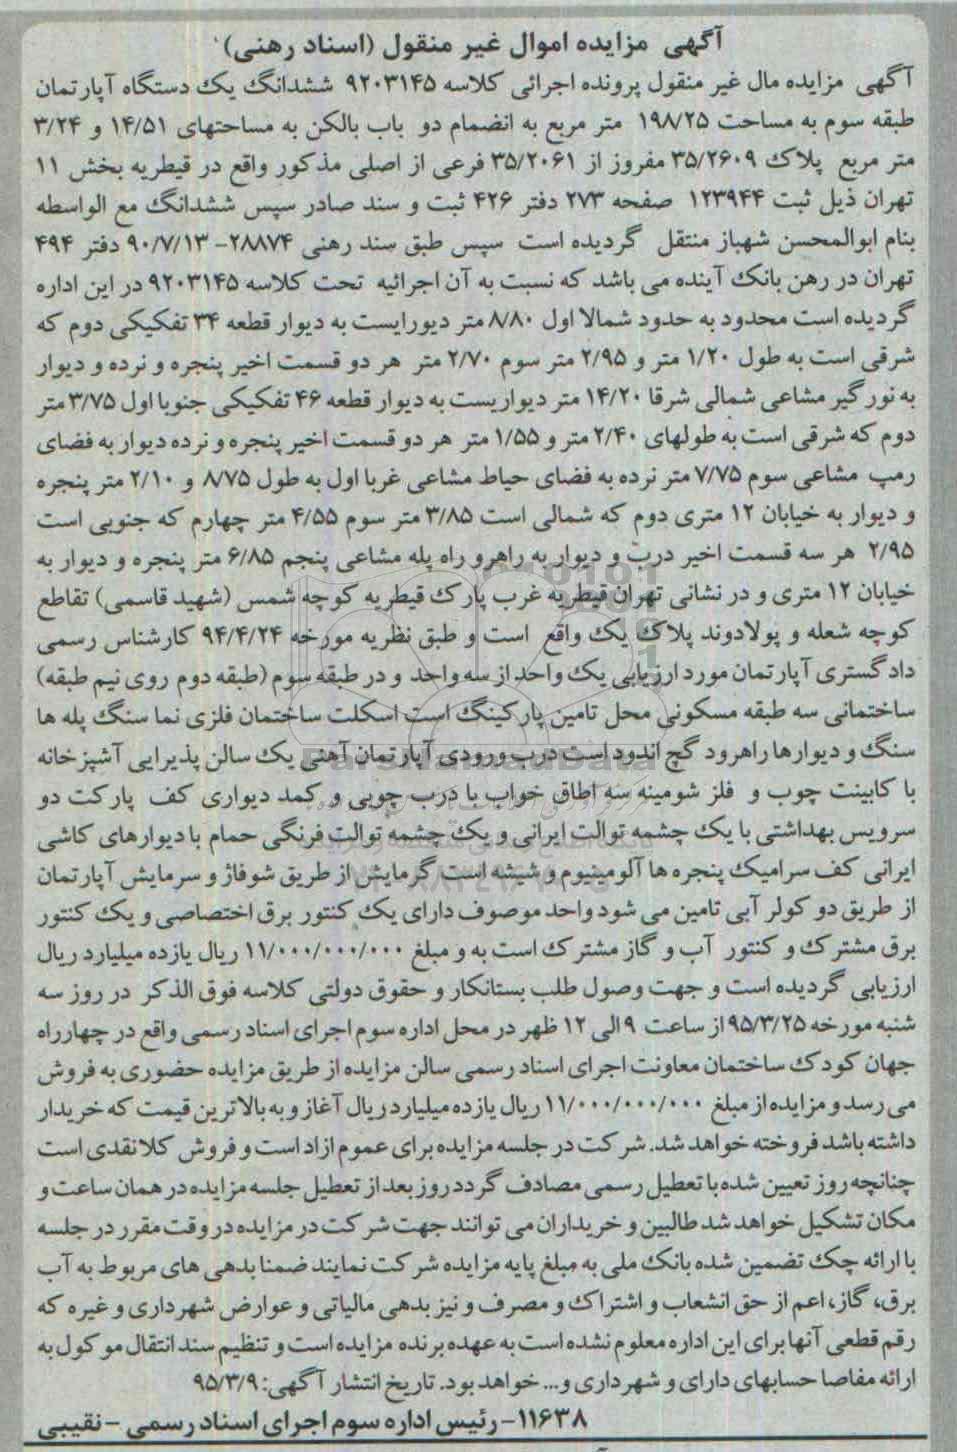 آگهی مزایده اموال غیر منقول (اسناد رهنی)
آگهی مزایده مال غیر منقول پرونده اجرائی کلاسه ۹۲۰۳۱۴۵ ششدانگ یک دستگاه آپارتمان
طبقه سوم به مساحت ۱۹۸/۲۵ متر مربع به انضمام دو باب بالکن به مساحتهای ۱۴/۵۱ و ۳/۲۴
متر مربع پلاک ۳۵/۲۶۰۹ مفروز از ۳۵/۲۰۶۱ فرعی از اصلی مذکور واقع در قیطریه بخش ۱۱
تهران ذیل ثبت ۱۲۳۹۴۴ صفحه ۲۷۳ دفتر ۴۲۶ ثبت و سند صادر سپس ششدانگ مع الواسطه
بنام ابوالمحسن شهباز منتقل گردیده است سپس طبق سند رهنی ۲۸۸۷۴- ۹۰/۷/۱۳ دفتر ۴۹۴
تهران در رهن بانک آینده می باشد که نسبت به آن اجرائیه تحت کلاسه ۹۲۰۳۱۴۵ در این اداره
گردیده است محدود به حدود شمالا اول ۸/۸۰ متر دیورایست به دیوار قطعه ۳۴ تفکیکی دوم که
شرقی است به طول ۱/۲۰ متر و ۲/۹۵ متر سوم ۲/۷۰ متر هر دو قسمت اخیر پنجره و نرده و دیوار
به نورگیر مشاعی شمالی شرقا ۱۴/۲۰ متر دیواریست به دیوار قطعه ۴۶ تفکیکی جنوبا اول ۳/۷۵ متر
دوم که شرقی است به طولهای ۲/۴۰ متر و ۱/۵۵ متر هر دو قسمت اخیر پنجره و نرده دیوار به فضای
رمپ مشاعی سوم ۷/۷۵ متر نرده به فضای حیاط مشاعی غربا اول به طول ۸/۷۵ و ۲/۱۰ متر پنجره
و دیوار به خیابان ۱۲ متری دوم که شمالی است ۳/۸۵ متر سوم ۴/۵۵ متر چهارم که جنوبی است
۲/۹۵ هر سه قسمت اخیر درب و دیوار به راهرو راه پله مشاعی پنجم ۶/۸۵ متر پنجره و دیوار به
خیابان ۱۲ متری و در نشانی تهران قیطریه غرب پارک قیطریه کوچه شمس (شهید قاسمی) تقاطع
کوچه شعله و پولادوند پلاک یک واقع است و طبق نظریه مورخه ۹۴/۴/۲۴ کارشناس رسمی
دادگستری آپارتمان مورد ارزیابی یک واحد از سه واحد و در طبقه سوم (طبقه دوم روی نیم طبقه)
ساختمانی سه طبقه مسکونی محل تامین پارکینگ است اسکلت ساختمان فلزی نما سنگ پله ها
سنگ و دیوارها راهرود گچ اندود است درب ورودی آپارتمان آهنی یک سالن پذیرایی آشپزخانه
با کابینت چوب و فلز شومینه سه اطاق خواب با درب چوبی و کمد دیواری کف پارکت دو
سرویس بهداشتی با یک چشمه توالت ایرانی و یک چشمه توالت فرنگی حمام با دیوارهای کاشی
ایرانی کف سرامیک پنجره ها آلومینیوم و شیشه است گرمایش از طریق شوفاژ و سرمایش آپارتمان
از طریق دو کولر آبی تامین می شود واحد موصوف دارای یک کنتور برق اختصاصی و یک کنتور
برق مشترک و کنتور آب و گاز مشترک است به و مبلغ ۱۱/۰۰۰/۰۰۰/۰۰۰ ریال یازده میلیارد ریال
ارزیابی گردیده است و جهت وصول طلب بستانکار و حقوق دولتی کلاسه فوق الذکر در روز سه
شنبه مورخه ۹۵/۳/۲۵ از ساعت ۹ الی ۱۲ ظهر در محل اداره سوم اجرای اسناد رسمی واقع در چهارراه
جهان کودک ساختمان معاونت اجرای اسناد رسمی سالن مزایده از طریق مزایده حضوری به فروش
می رسد و مزایده از مبلغ ۱۱/۰۰۰/۰۰۰/۰۰۰ ریال یازده میلیارد ریال آغاز و به بالاترین قیمت که خریدار
داشته باشد فروخته خواهد شد. شرکت در جلسه مزایده برای عموم ازاد است و فروش کلا نقدی است
چنانچه روز تعیین شده با تعطیل رسمی مصادف گردد روز بعد از تعطیل جلسه مزایده در همان ساعت و
مکان تشکیل خواهد شد طالبین و خریداران می توانند جهت شرکت در مزایده در وقت مقرر در جلسه
با ارائه چک تضمین شده بانک ملی به مبلغ پایه مزایده شرکت نمایند ضمنا بدهی های مربوط به آب
برق، گاز، اعم از حق انشعاب و اشتراک و مصرف و نیز بدهی مالیاتی و عوارض شهرداری و غیره که
رقم قطعی آنها برای این اداره معلوم نشده است به عهده برنده مزایده است و تنظیم سند انتقال موکول به
ارائه مفاصا حسابهای دارای و شهرداری و... خواهد بود. تاریخ انتشار آگهی: ۹۵/۳/۹
۱۱۶۳۸- رئیس اداره سوم اجرای اسناد رسمی - نقیبی